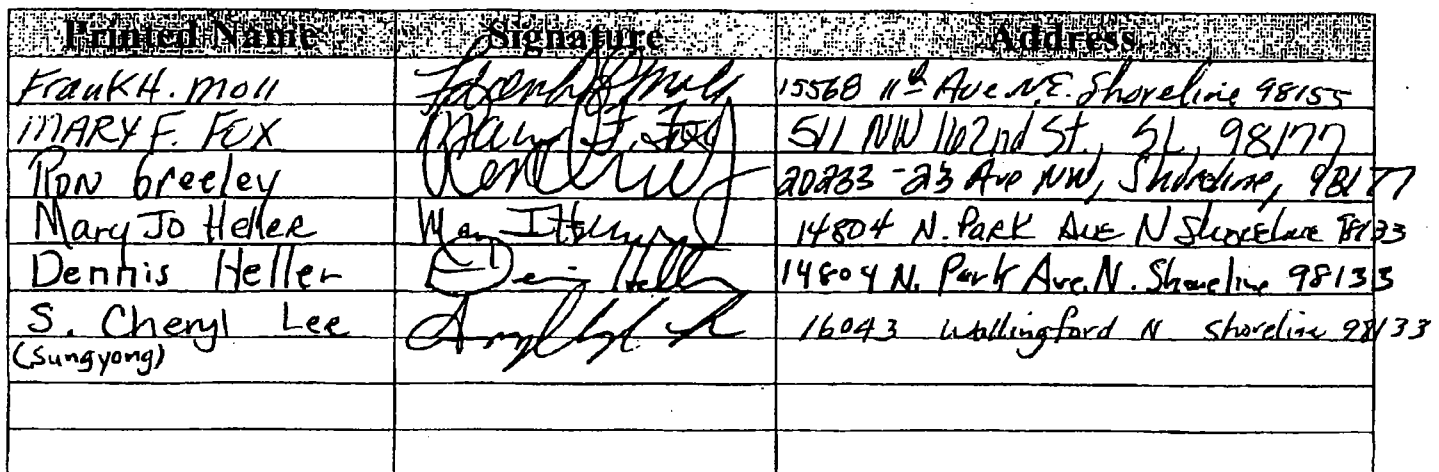 Printed Name Signature Address
Frank H. Moll 15568 11th Ave N.E. Shoreline 98155
MARY F. FOX Mary F. Fox 511 NW 162nd St., SL, 98177
RON Greeley 20233 - 23 Ave NW, Shoreline, 98177
Mary Jo Heller 14804 N. Park Ave N Shoreline 98133
Dennis Heller Dennis Heller 14804 N. Park Ave. N. Shoreline 98133
S. Cheryl Lee 16043 Wallingford N Shoreline 98133
(Sungyong)